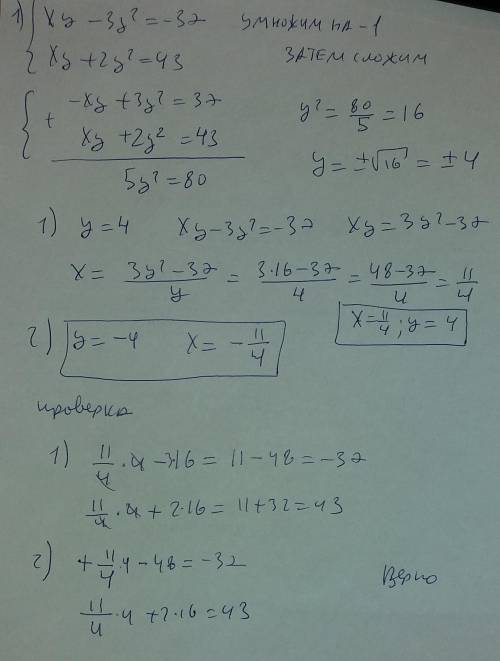 1) { xy - 3y² = -37 умножим на -1
xy + 2y² = 43 затем сложим
{ + -xy + 3y² = 37
xy + 2y² = 43
5y² = 80
y² = 80/5 = 16
y = ±√16 = ±4
1) y = 4 xy - 3y² = -37 xy = 3y² - 37
x = (3y² - 37)/y = (3·16 - 37)/4 = (48 - 37)/4 = 11/4
x = 11/4; y = 4
2) y = -4 x = -11/4
проверка
1) 11/4 · 4 - 3·16 = 11 - 48 = -37
11/4 · 4 + 2·16 = 11 + 32 = 43
2) + 11/4 · 4 - 48 = -37
11/4 · 4 + 2·16 = 43
Верно